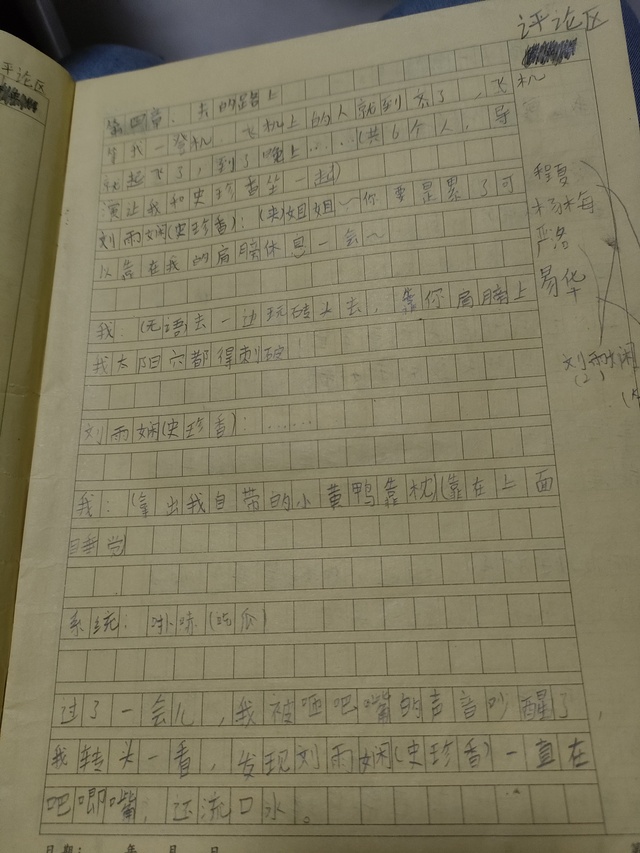 评论区
评论区
第四章、去的路上
等我一登机 飞机上的人就到齐了,飞机
就起飞了,到了晚上……(共6个人,导
演让我和史珍香坐一起)
刘雨娴(史珍香):(夹)姐姐~你要是累了可
以靠在我的肩膀休息一会~
我:(无语)去一边玩砖上去,靠你肩膀上
我太阳穴都得刺破!
刘雨娴(史珍香):……
我:(拿出我自带的小黄鸭靠枕)(靠在上面
睡觉)
系统:噗嗤(吃瓜)
过了一会儿,我被咂吧嘴的声音吵醒了,
我转头一看,发现刘雨娴(史珍香)一直在
吧唧嘴,还流口水。
程夏
杨梅
严浩
易华
刘雨娴
(2)
日期: 年 月 日
第